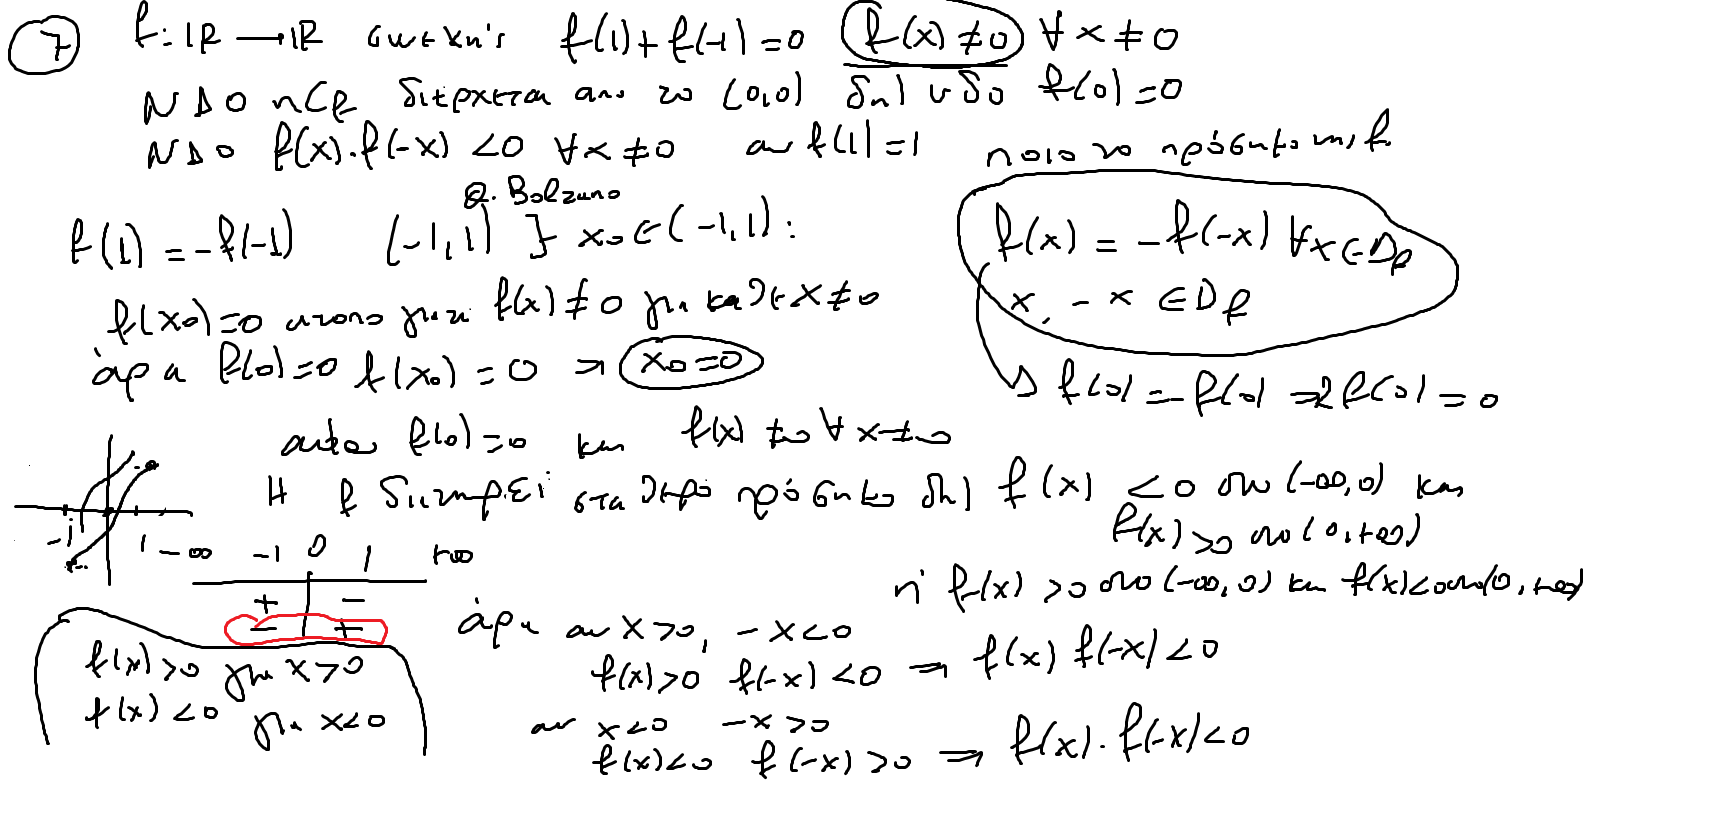 7 f: ℝ → ℝ συνεχής f(1)+f(-1)=0 f(x)≠0 ∀x≠0
ΝΔΟ η Cf διέρχεται απο το (0,0) δηλ νδο f(0)=0
ΝΔΟ f(x).f(-x)<0 ∀x≠0 αν f(1)=1 ποιο το πρόσημο της f
Θ. Bolzano
f(1)=-f(-1) [-1,1] } x₀∈(-1,1):
f(x)=-f(-x) ∀x∈Df
x, -x ∈Df
f(x₀)=0 ατοπο για f(x)≠0 για καθε x≠0
άρα f(0)=0 f(x₀)=0 ⇒ x₀=0
f(0)=-f(0) ⇒2f(0)=0
f(0)=0 και f(x)≠0 ∀x≠0
Η f διατηρεί σταθερό πρόσημο δηλ f(x)<0 στο (-∞,0) και
f(x)>0 στο (0,+∞)
-1 1 -∞ -1 0 1 +∞
ή f(x)>0 στο (-∞,0) και f(x)<0 στο (0,+∞)
+ -
- +
άρα αν x>0, -x<0
f(x)>0 για x>0
f(x)>0 f(-x)<0 ⇒ f(x) f(-x)<0
f(x)<0 για x<0
αν x<0 -x>0
f(x)<0 f(-x)>0 ⇒ f(x).f(-x)<0